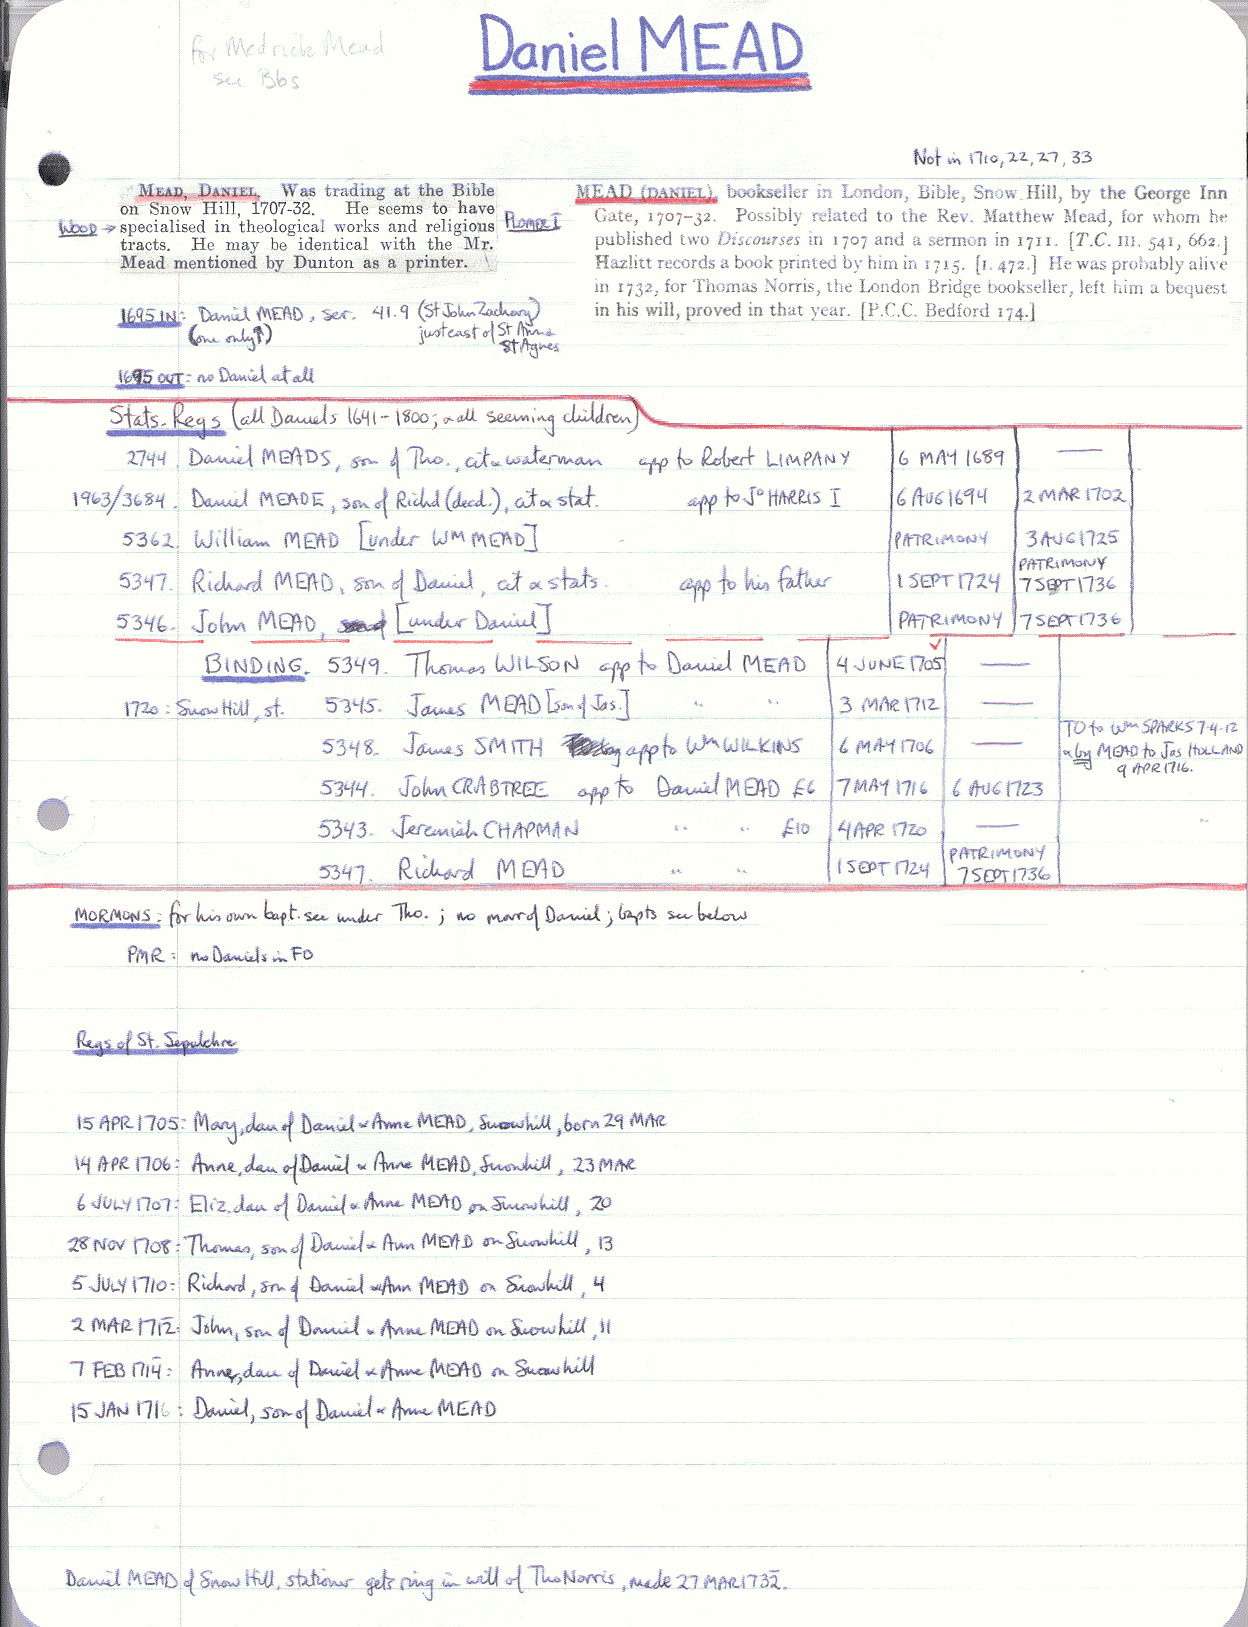 for Medriche Mead
see Bbs
Daniel MEAD
Not in 1710, 22, 27, 33
MEAD, DANIEL. Was trading at the Bible
on Snow Hill, 1707-32. He seems to have
WOOD → specialised in theological works and religious
tracts. He may be identical with the Mr.
Mead mentioned by Dunton as a printer.
PLOMER I
MEAD (DANIEL), bookseller in London, Bible, Snow Hill, by the George Inn
Gate, 1707-32. Possibly related to the Rev. Matthew Mead, for whom he
published two Discourses in 1707 and a sermon in 1711. [T.C. III. 541, 662.]
Hazlitt records a book printed by him in 1715. [I. 472.] He was probably alive
in 1732, for Thomas Norris, the London Bridge bookseller, left him a bequest
in his will, proved in that year. [P.C.C. Bedford 174.]
1695 IN: Daniel MEAD, ser. 41.9 (St John Zachary)
(one only↑) just east of St Ann &
St Agnes
1695 OUT: no Daniel at all
Stats. Regs (all Daniels 1641-1800; & all seeming children)
2744. Daniel MEADS, son of Tho., cit & waterman app to Robert LIMPANY 6 MAY 1689 —
1963/3684. Daniel MEADE, son of Richd (decd.), cit & stat. app to Jo HARRIS I 6 AUG 1694 2 MAR 1702
5362. William MEAD [under WM MEAD] PATRIMONY 3 AUG 1725
5347. Richard MEAD, son of Daniel, cit & stats. app to his father 1 SEPT 1724 PATRIMONY 7 SEPT 1736
5346. John MEAD, [under Daniel] PATRIMONY 7 SEPT 1736
BINDING. 5349. Thomas WILSON app to Daniel MEAD 4 JUNE 1705 ✓ —
1720: Snow Hill, st. 5345. James MEAD [son of Jas.] " " 3 MAR 1712 —
5348. James SMITH app to Wm WILKINS 6 MAY 1706 — TO to Wm SPARKS 7-4-12
& by MEAD to Jas HOLLAND
9 APR 1716.
5344. John CRABTREE app to Daniel MEAD £6 7 MAY 1716 6 AUG 1723
5343. Jeremiah CHAPMAN " " £10 4 APR 1720 —
5347. Richard MEAD " " 1 SEPT 1724 PATRIMONY 7 SEPT 1736
MORMONS: for his own bapt. see under Tho.; no marr of Daniel; bapts see below
PMR: no Daniels in FO
Regs of St. Sepulchre
15 APR 1705: Mary, dau of Daniel & Anne MEAD, Snowhill, born 29 MAR
14 APR 1706: Anne, dau of Daniel & Anne MEAD, Snowhill, 23 MAR
6 JULY 1707: Eliz. dau of Daniel & Anne MEAD on Snowhill, 20
28 NOV 1708: Thomas, son of Daniel & Ann MEAD on Snowhill, 13
5 JULY 1710: Richard, son of Daniel & Ann MEAD on Snowhill, 4
2 MAR 1712: John, son of Daniel & Anne MEAD on Snowhill, 11
7 FEB 1714: Anne, dau of Daniel & Anne MEAD on Snowhill
15 JAN 1716: Daniel, son of Daniel & Anne MEAD
Daniel MEAD of Snow Hill, stationer gets ring in will of Tho Norris, made 27 MAR 1732.